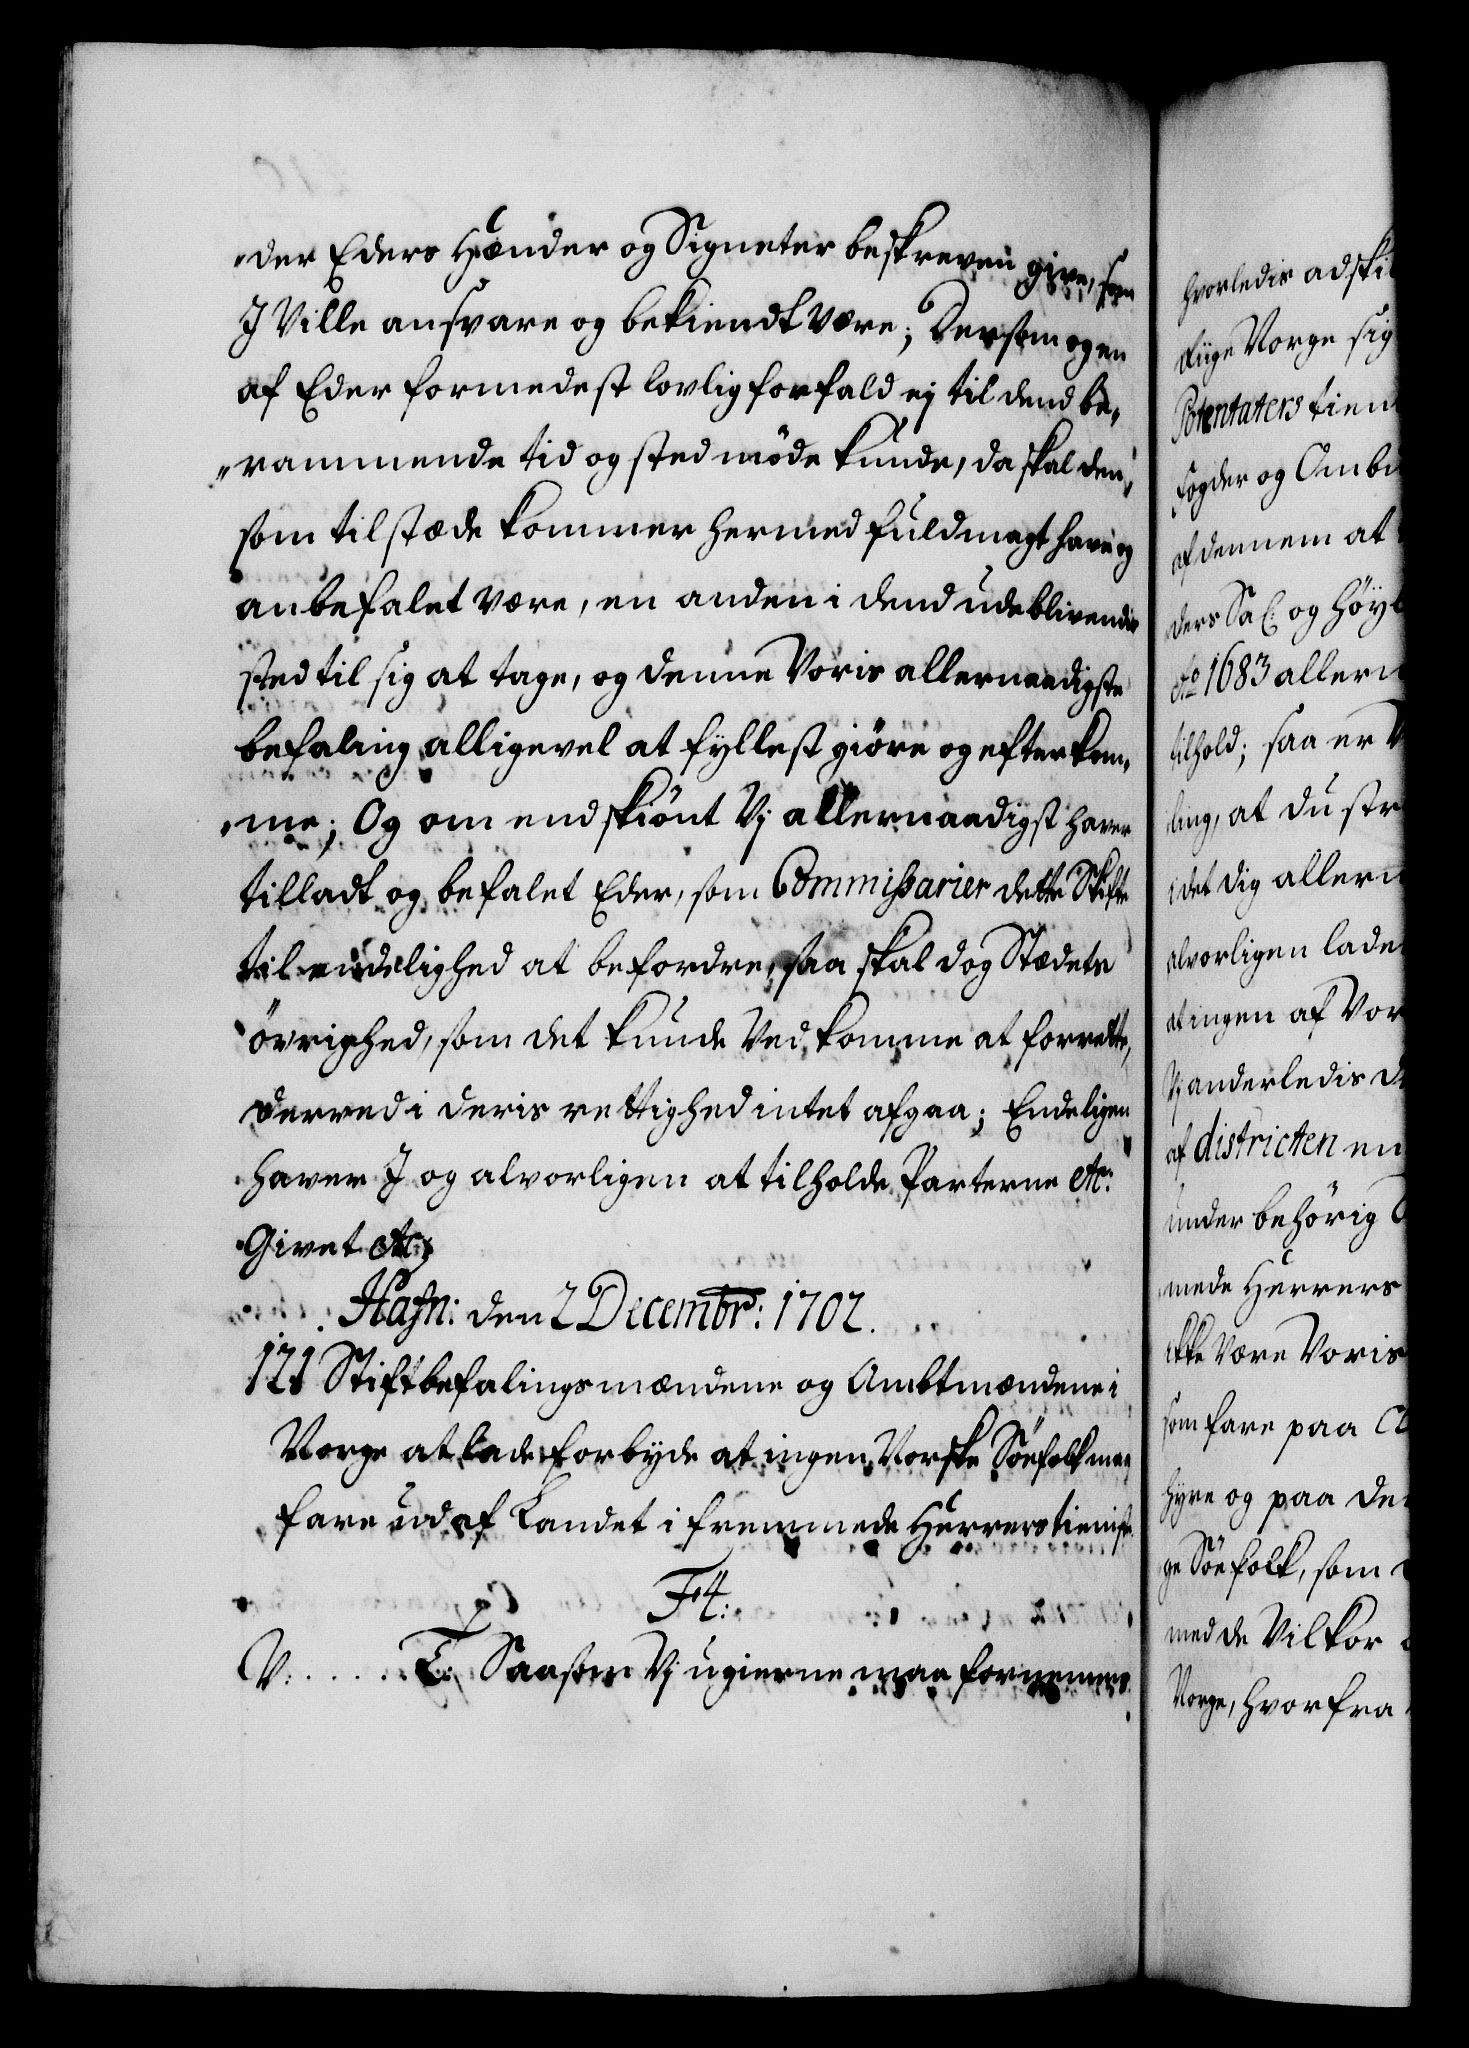 der Eders Hænder og Signeter beskreven give, som
J Ville ansvare og bekiendt være; Dersom og en
af Eder formedest lovlig forfald ej til dend be„
„rammende tid og sted møde kunde, da skal den„
som tilstæde kommer hermed fuldmagt have og
anbefalet være, en anden i dend udeblivendis
sted til sig at tage, og denne Voris allernaadigste
befaling alligevel at fyllest giöre og efterkom„
„me; Og om end skiönt Vj allernaadigst haver
tilladt og befalet Eder, som Commissarier dette Skifte
til endelighed at befordre, saa skal dog Stædets
övrighed, som det kunde Ved komme at forrette,
derved i deris rettighed intet afgaa; Endeligen
haver J og alvorligen at tilholde Parterne etc:
Givet etc:
Hafn: den 2 Decembr: 1702.
121 Stiftbefalingsmændene og Ambtmændene i
Norge at lade forbyde at ingen Norske Söefolk maa
fare ud af Landet i fremmede Herrers tieniste.
F4:
V. . . . . T: Saasom Vj ugierne maa fornemme
hvorledis adskil
fra Norge sig
Potentaters tien
fogder og Ombu
af dennem at
ders Sal: og Höyl
Ao 1683 allern
tilhold; saa er V
ling, at du str
det dig allern
alvorligen lade
at ingen af Vor
Vj anderledis d
af districten en
under behörig
mede Herrers
ikke være Voris
som fare paa
hyre og paa de
ge Söefolk, som
med de Vilkor
Norge, hvorfra